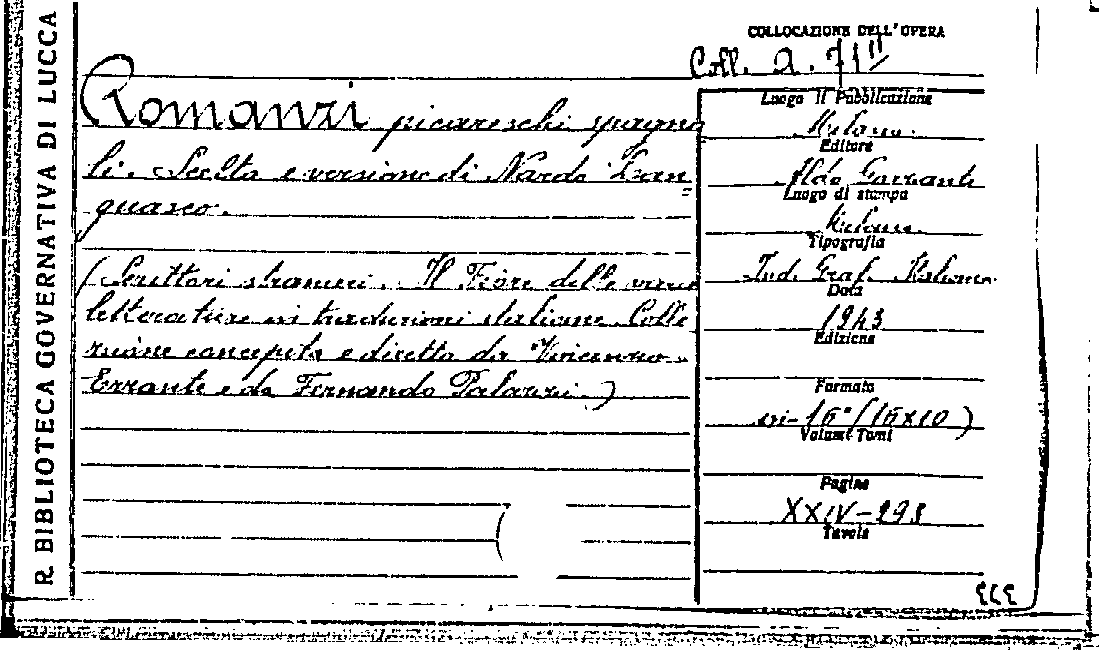 R. BIBLIOTECA GOVERNATIVA DI LUCCA
COLLOCAZIONE DELL'OPERA
Coll. a. 71 II
Romanzi picareschi spagno
li. Scelta e versione di Nardo Lan
guasco.
(Scrittori stranieri. Il Fiore delle varie
letterature in traduzioni italiane. Colle
zione concepita e diretta da Vincenzo
Errante e da Fernando Palazzi.)
Luogo di Pubblicazione
Milano.
Editore
Aldo Garzanti
Luogo di stampa
Milano
Tipografia
Ind. Graf. Italiana
Data
1943
Edizione
Formato
in-16° (16x10)
Volumi Tomi
Pagine
XXIV-293
Tavole